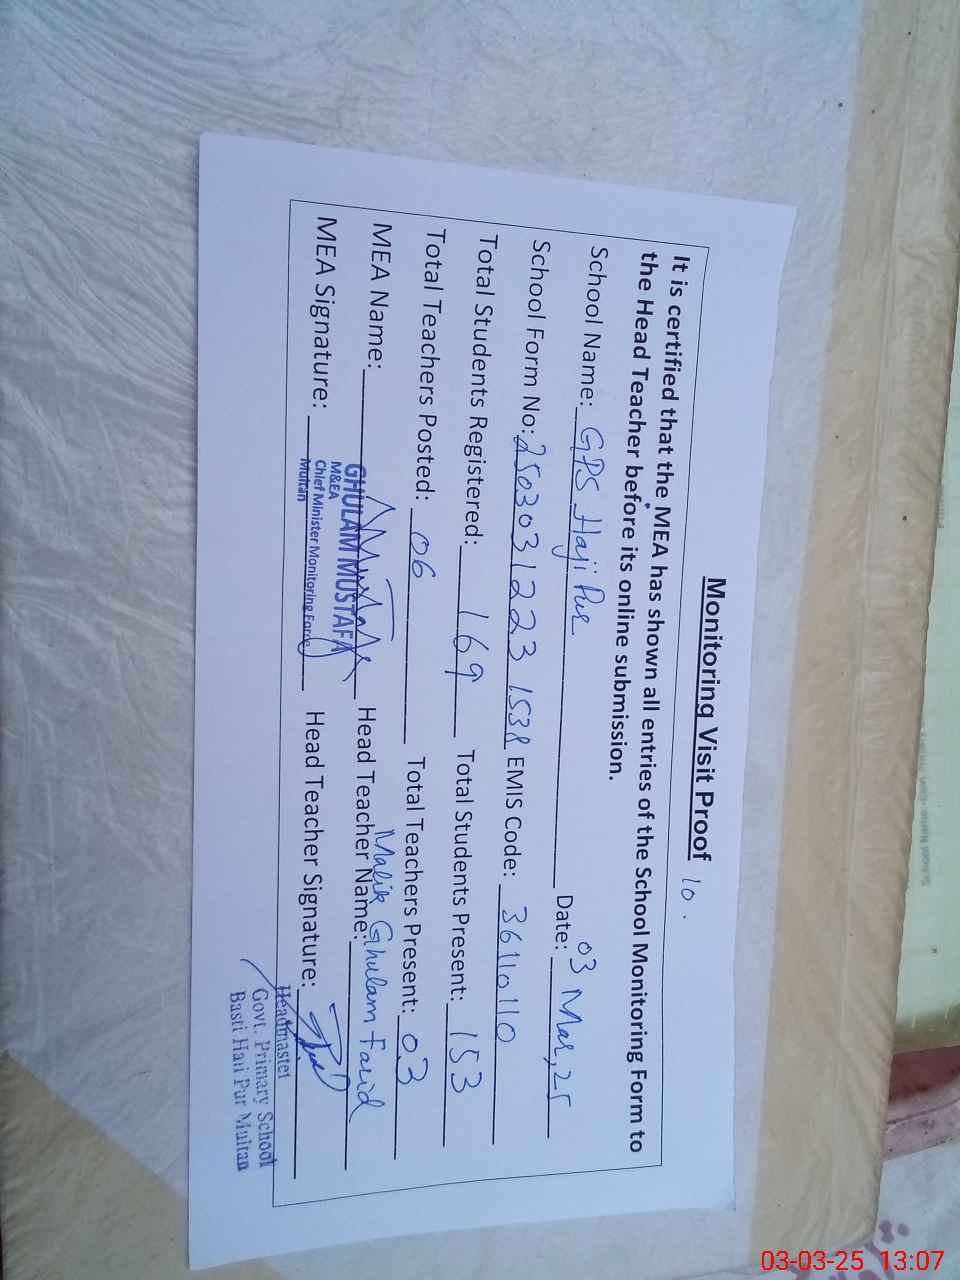 Monitoring Visit Proof 10.
It is certified that the MEA has shown all entries of the School Monitoring Form to
the Head Teacher before its online submission.
School Name: GPS Haji Pur Date: 03 Mar, 25
School Form No: 250303 1223 1538 EMIS Code: 36110110
Total Students Registered: 169 Total Students Present: 153
Total Teachers Posted: 06 Total Teachers Present: 03
MEA Name: GHULAM MUSTAFA Head Teacher Name: Malik Ghulam Farid
M&EA
Chief Minister Monitoring Force
Multan
MEA Signature: Head Teacher Signature:
Headmaster
Govt. Primary School
Basti Haji Pur Multan
03-03-25 13:07